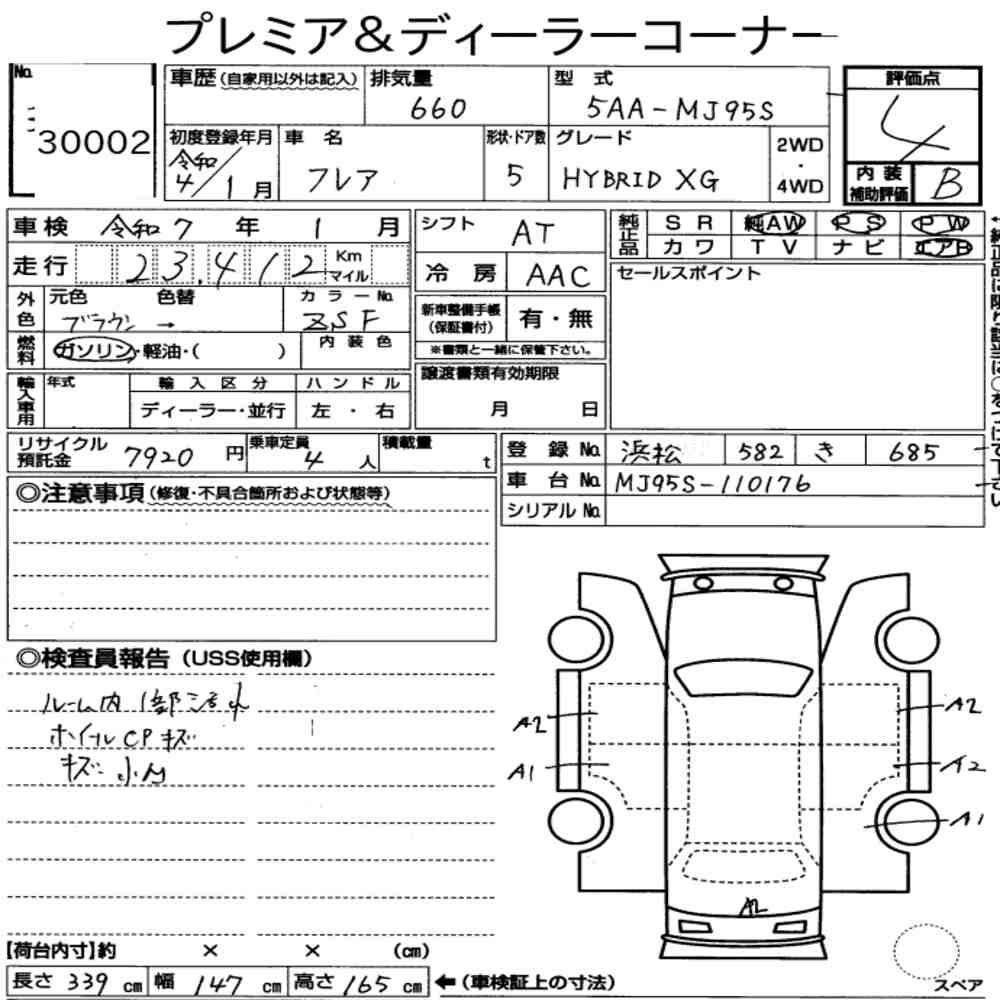 プレミア&ディーラーコーナー
No. 30002
車歴(自家用以外は記入) 排気量 660 型式 5AA-MJ95S 評価点 4
初度登録年月 令和4/1月 車名 フレア 形状・ドア数 5 グレード HYBRID XG 2WD・4WD 内装補助評価 B
車検 令和7年1月 シフト AT 純正品 SR 純AW PS PW
カワ TV ナビ エアB
走行 23,412 Km マイル 冷房 AAC セールスポイント
外色 元色 ブラウン 色替 → カラーNo. ZSF 新車整備手帳(保証書付) 有・無
燃料 ガソリン・軽油・( ) 内装色 ※書類と一緒に保管下さい。
輸入車用 年式 輸入区分 ディーラー・並行 ハンドル 左・右 譲渡書類有効期限 月 日
リサイクル預託金 7920円 乗車定員 4人 積載量 t 登録No. 浜松 582 き 685
車台No. MJ95S-110176
シリアルNo.
◎注意事項(修復・不具合箇所および状態等)
◎検査員報告(USS使用欄)
ルーム内1部汚れ
ホイルCPキズ
キズ小凹
A2 A2
A1 A2
A1
A2
【荷台内寸】約 × × (cm)
長さ 339 cm 幅 147 cm 高さ 165 cm ←(車検証上の寸法)
スペア